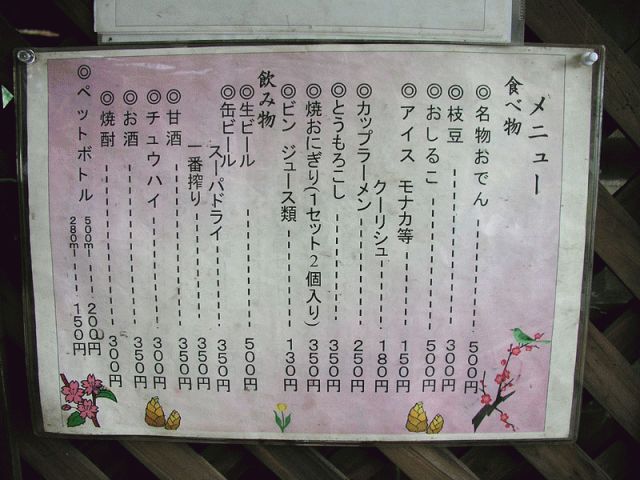 メニュー
食べ物
◎名物おでん-----------500円
◎枝豆-----------300円
◎おしるこ-----------500円
◎アイス モナカ等-----------150円
クーリシュ-----------180円
◎カップラーメン-----------250円
◎とうもろこし-----------350円
◎焼おにぎり(1セット2個入り)350円
◎ビン ジュース類-----------130円
飲み物
◎生ビール-----------500円
◎缶ビール スーパドライ-----------350円
一番搾り-----------350円
◎甘酒-----------350円
◎チュウハイ-----------300円
◎お酒-----------350円
◎焼酎-----------300円
◎ペットボトル 500ml----200円
280ml----150円